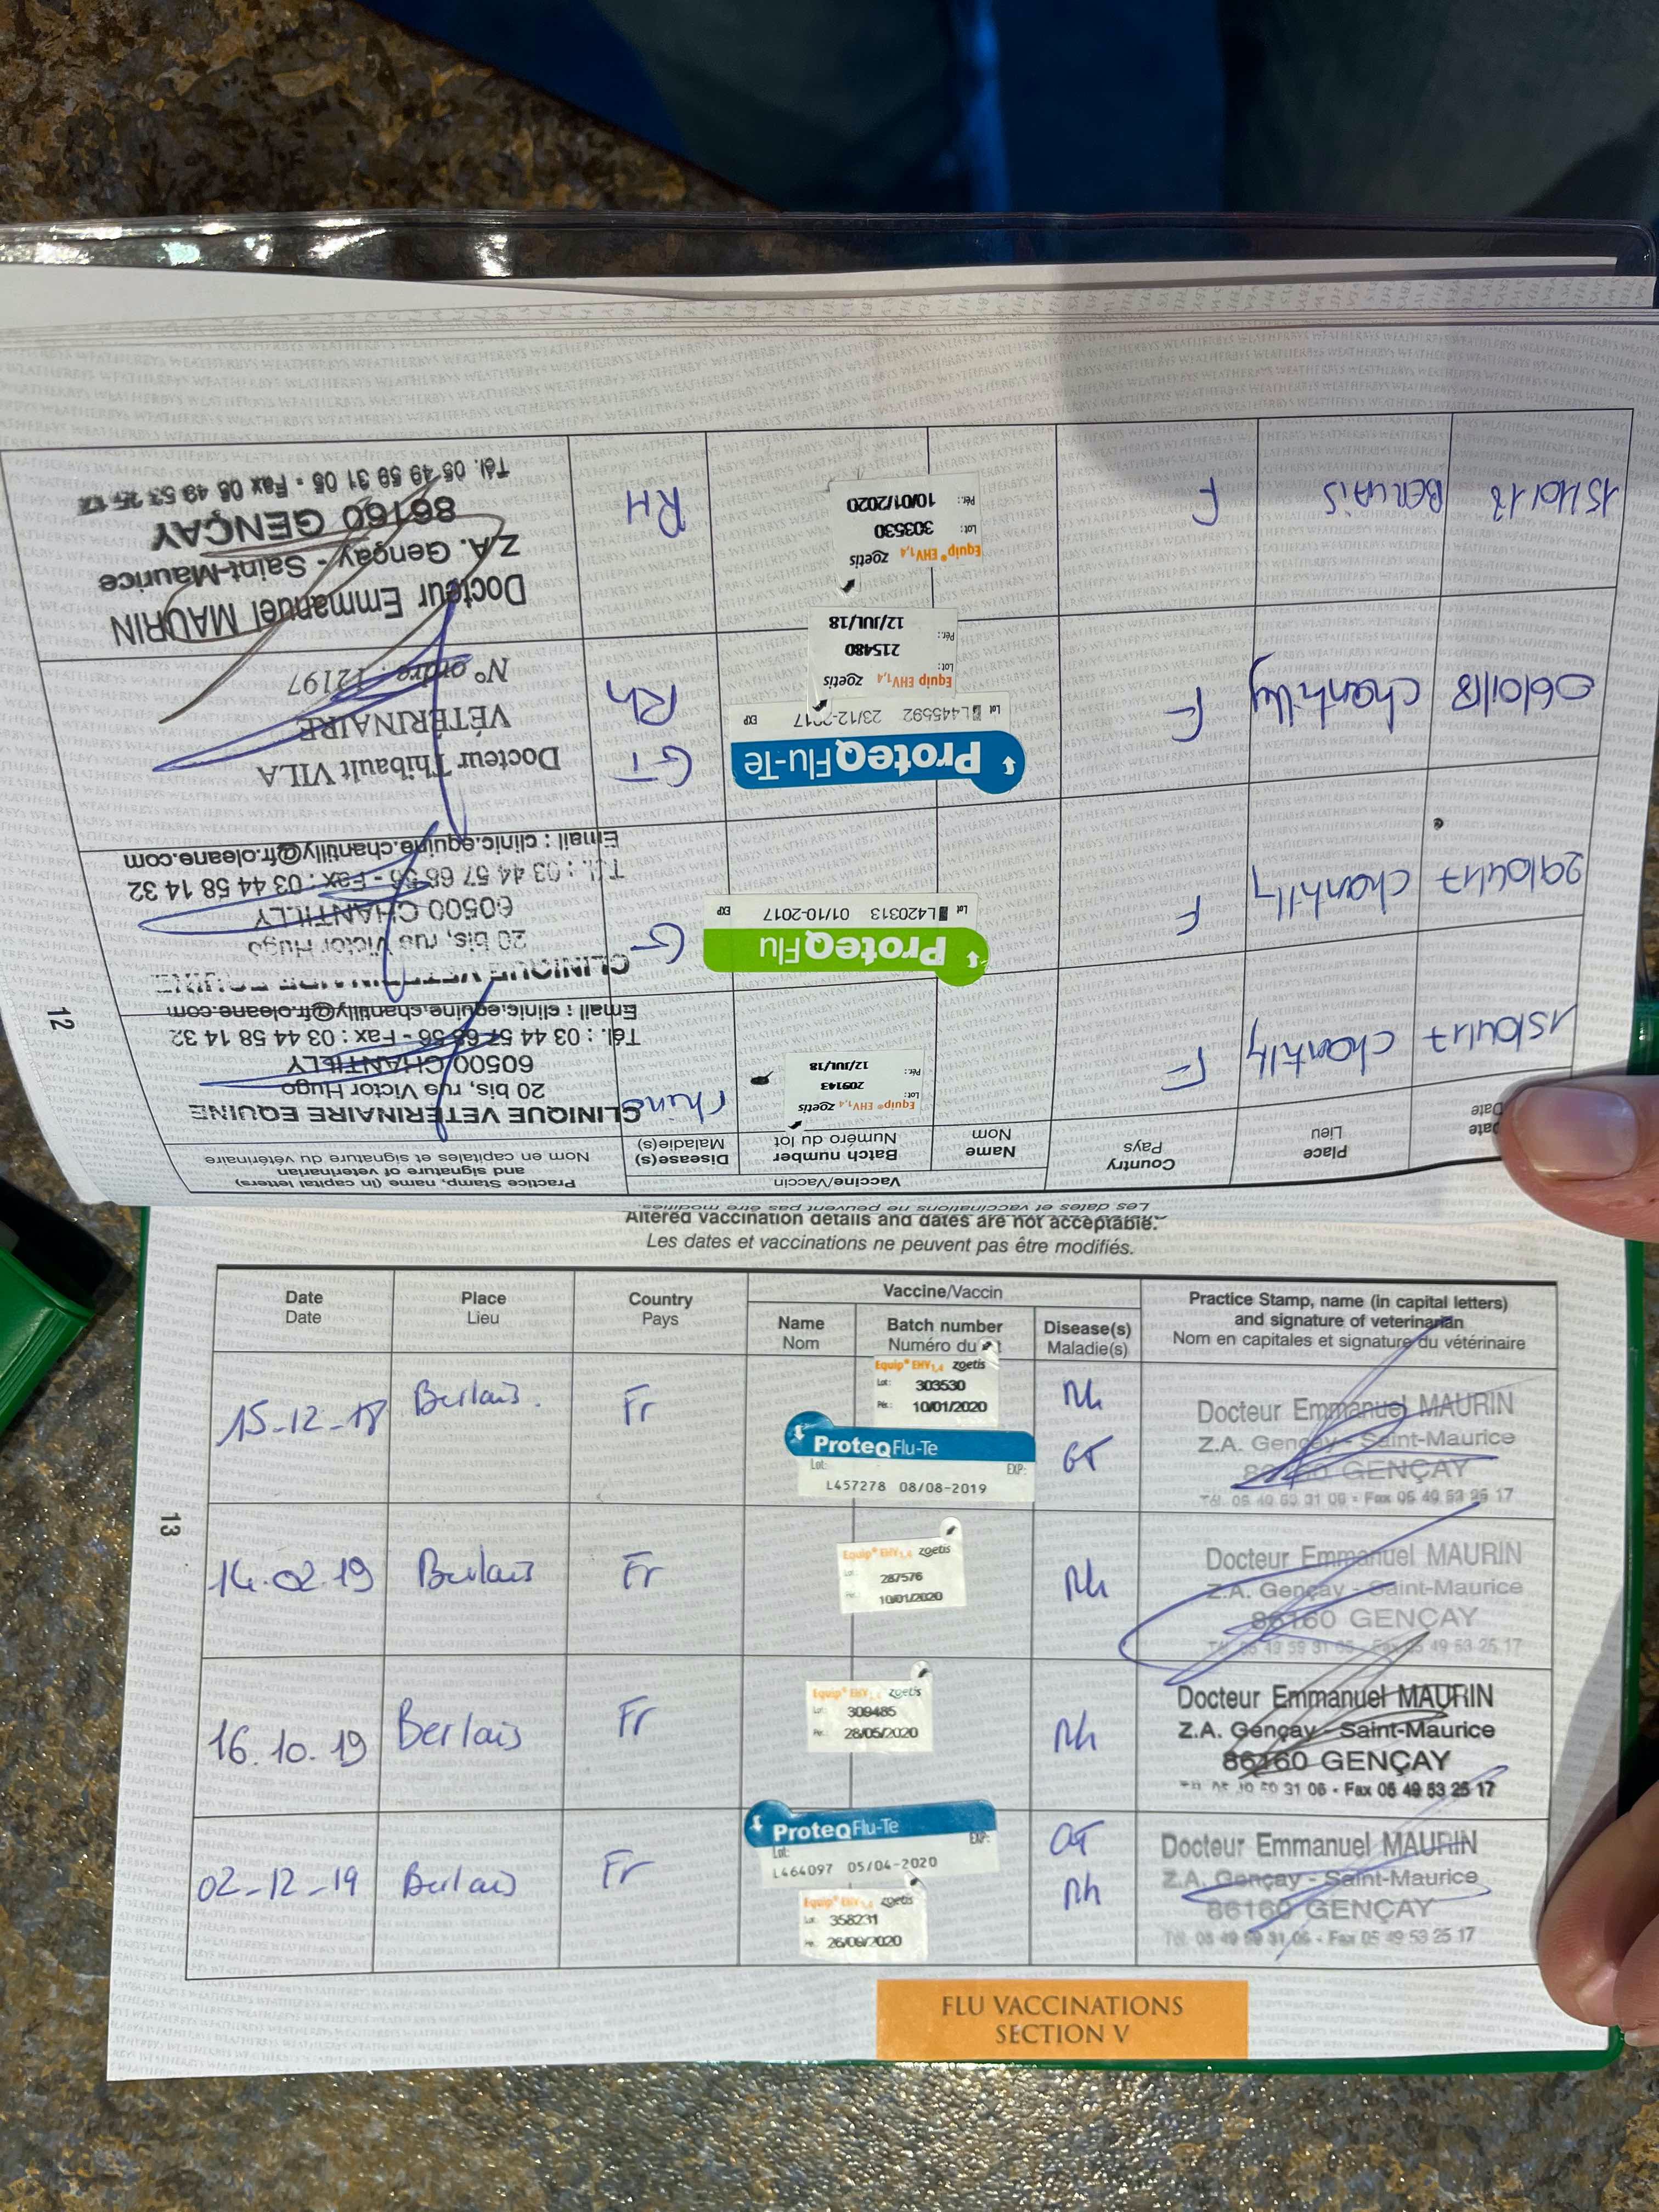 12
Les dates et vaccinations ne peuvent pas être modifiés.
Date
Date
Place
Lieu
Country
Pays
Vaccine/Vaccin
Name
Nom
Batch number
Numéro du lot
Disease(s)
Maladie(s)
Practice Stamp, name (in capital letters)
and signature of veterinarian
Nom en capitales et signature du vétérinaire
15/04/17
Chantilly
F
Equip® EHV1,4 zoetis
Lot: 209143
Pér.: 12/JUL/18
rhino
CLINIQUE VETERINAIRE EQUINE
20 bis, rue Victor Hugo
60500 CHANTILLY
Tél. : 03 44 57 68 56 - Fax : 03 44 58 14 32
Email : clinic.equine.chantilly@fr.oleane.com
29/04/17
Chantilly
F
ProteqFlu
Lot L420313 01/10-2017 EXP
G
CLINIQUE VETERINAIRE EQUINE
20 bis, rue Victor Hugo
60500 CHANTILLY
Tél. : 03 44 57 68 56 - Fax : 03 44 58 14 32
Email : clinic.equine.chantilly@fr.oleane.com
06/01/18
Chantilly
F
ProteqFlu-Te
Lot L445592 23/12-2017 EXP
Equip EHV1,4 zoetis
Lot: 215480
Pér.: 12/JUL/18
GT
Rh
Docteur Thibault VILA
VÉTÉRINAIRE
N° ordre : 12197
15/10/18
BERLAIS
F
Equip® EHV1,4 zoetis
Lot: 303530
Pér.: 10/01/2020
RH
Docteur Emmanuel MAURIN
Z.A. Gençay - Saint-Maurice
86160 GENÇAY
Tél. 05 49 59 31 06 - Fax 05 49 53 25 17
Altered vaccination details and dates are not acceptable.
Les dates et vaccinations ne peuvent pas être modifiés.
13
Date
Date
Place
Lieu
Country
Pays
Vaccine/Vaccin
Name
Nom
Batch number
Numéro du
Disease(s)
Maladie(s)
Practice Stamp, name (in capital letters)
and signature of veterinarian
Nom en capitales et signature du vétérinaire
15-12-18
Berlais.
Fr
Equip® EHV1,4 zoetis
Lot: 303530
Pér.: 10/01/2020
ProteqFlu-Te
Lot: EXP:
L457278 08/08-2019
Rh
GT
Docteur Emmanuel MAURIN
Z.A. Gençay - Saint-Maurice
86160 GENÇAY
Tél. 05 49 59 31 06 - Fax 05 49 53 25 17
14.02.19
Berlais
Fr
Equip® EHV1,4 zoetis
Lot: 287576
Pér.: 10/01/2020
Rh
Docteur Emmanuel MAURIN
Z.A. Gençay - Saint-Maurice
86160 GENÇAY
Tél. 05 49 59 31 06 - Fax 05 49 53 25 17
16.10.19
Berlais
Fr
Equip® EHV1,4 zoetis
Lot: 309485
Pér.: 28/05/2020
Rh
Docteur Emmanuel MAURIN
Z.A. Gençay - Saint-Maurice
86160 GENÇAY
Tél. 05 49 59 31 06 - Fax 05 49 53 25 17
02-12-19
Berlais
Fr
ProteqFlu-Te
Lot: EXP:
L464097 05/04-2020
Equip® EHV1,4 zoetis
Lot: 358231
Pér.: 26/09/2020
GT
Rh
Docteur Emmanuel MAURIN
Z.A. Gençay - Saint-Maurice
86160 GENÇAY
Tél. 05 49 59 31 06 - Fax 05 49 53 25 17
FLU VACCINATIONS
SECTION V